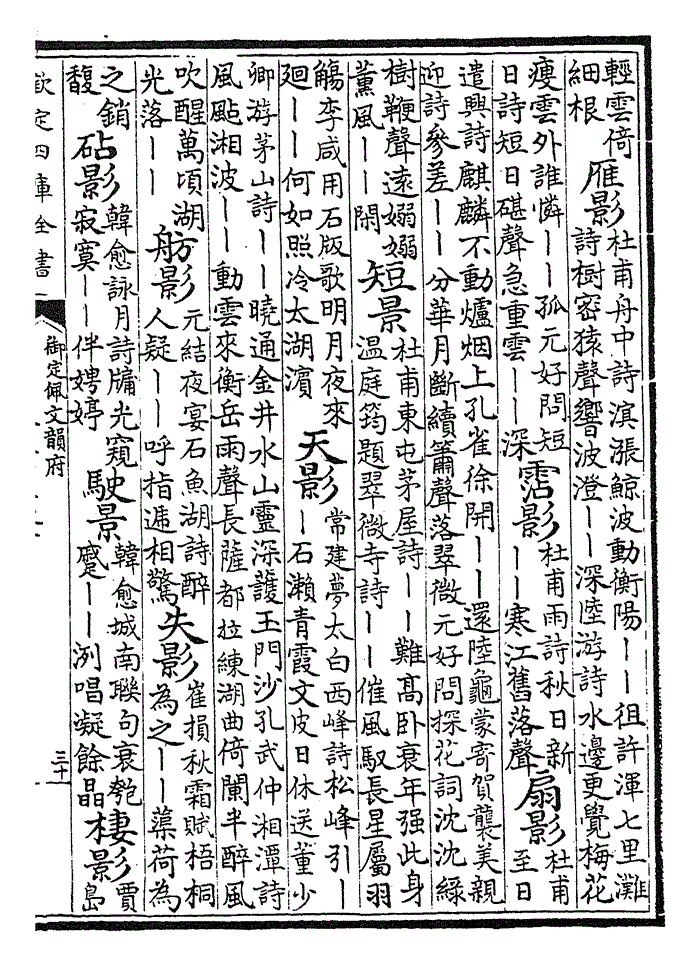 輕雲倚
細根
雁影
杜甫舟中詩滇漲鯨波動衡陽——徂許渾七里灘
詩樹密猿聲響波澄——深陸游詩水邊更覺梅花
瘦雲外誰憐——孤元好問短
日詩短日碪聲急重雲——深
霑影
杜甫雨詩秋日新
——寒江舊落聲
扇影
杜甫
至日
遣興詩麒麟不動爐烟上孔雀徐開——還陸龜蒙寄賀襲美親
迎詩參差——分華月斷續簫聲落翠微元好問探花詞沈沈綠
樹鞭聲遠嫋嫋
薰風——閑
短景
杜甫東屯茅屋詩——難高卧衰年强此身
温庭筠題翠微寺詩——催風馭長星屬羽
觴李咸用石版歌明月夜來
廻——何如照冷太湖濵
天影
常建夢太白西峰詩松峰引—
—石瀨青霞文皮日休送董少
卿游茅山詩——曉通金井水山靈深護玉門沙孔武仲湘潭詩
風颭湘波——動雲來衡岳雨聲長薩都拉練湖曲倚闌半醉風
吹醒萬頃湖
光落——
舫影
元結夜宴石魚湖詩醉
人疑——呼指遞相驚
失影
崔損秋霜賦梧桐
為之——蕖荷為
之銷
馥
砧影
韓愈詠月詩牖光窺
寂寞——伴娉婷
駛景
韓愈城南聯句衰匏
蹙——洌唱凝餘晶
棲影
賈
島
欽定四庫全書
御定佩文韻府
三十